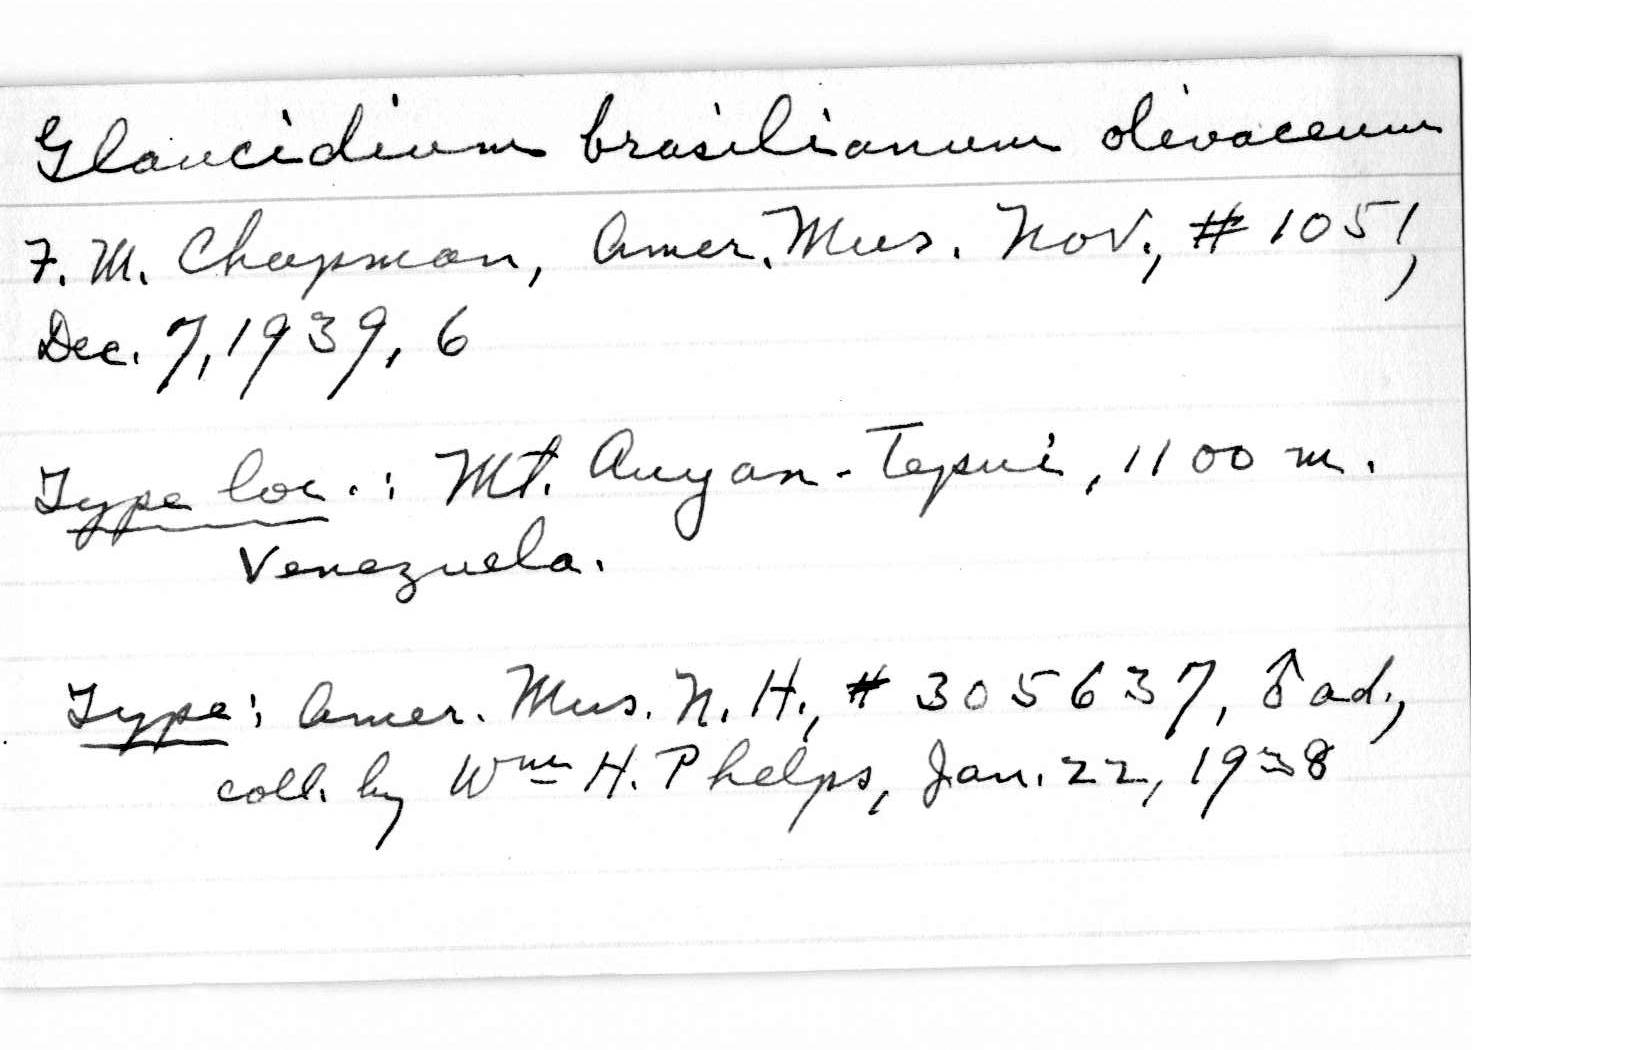 Glaucidium brasilianum olivaceum
F. M. Chapman, Amer. Mus. Nov., # 1051,
Dec. 7, 1939, 6
Type loc.: Mt. Auyan-Tepui, 1100 m.
Venezuela.
Type: Amer. Mus. N. H., # 305637, ♂ ad.,
coll. by Wm H. Phelps, Jan. 22, 1938